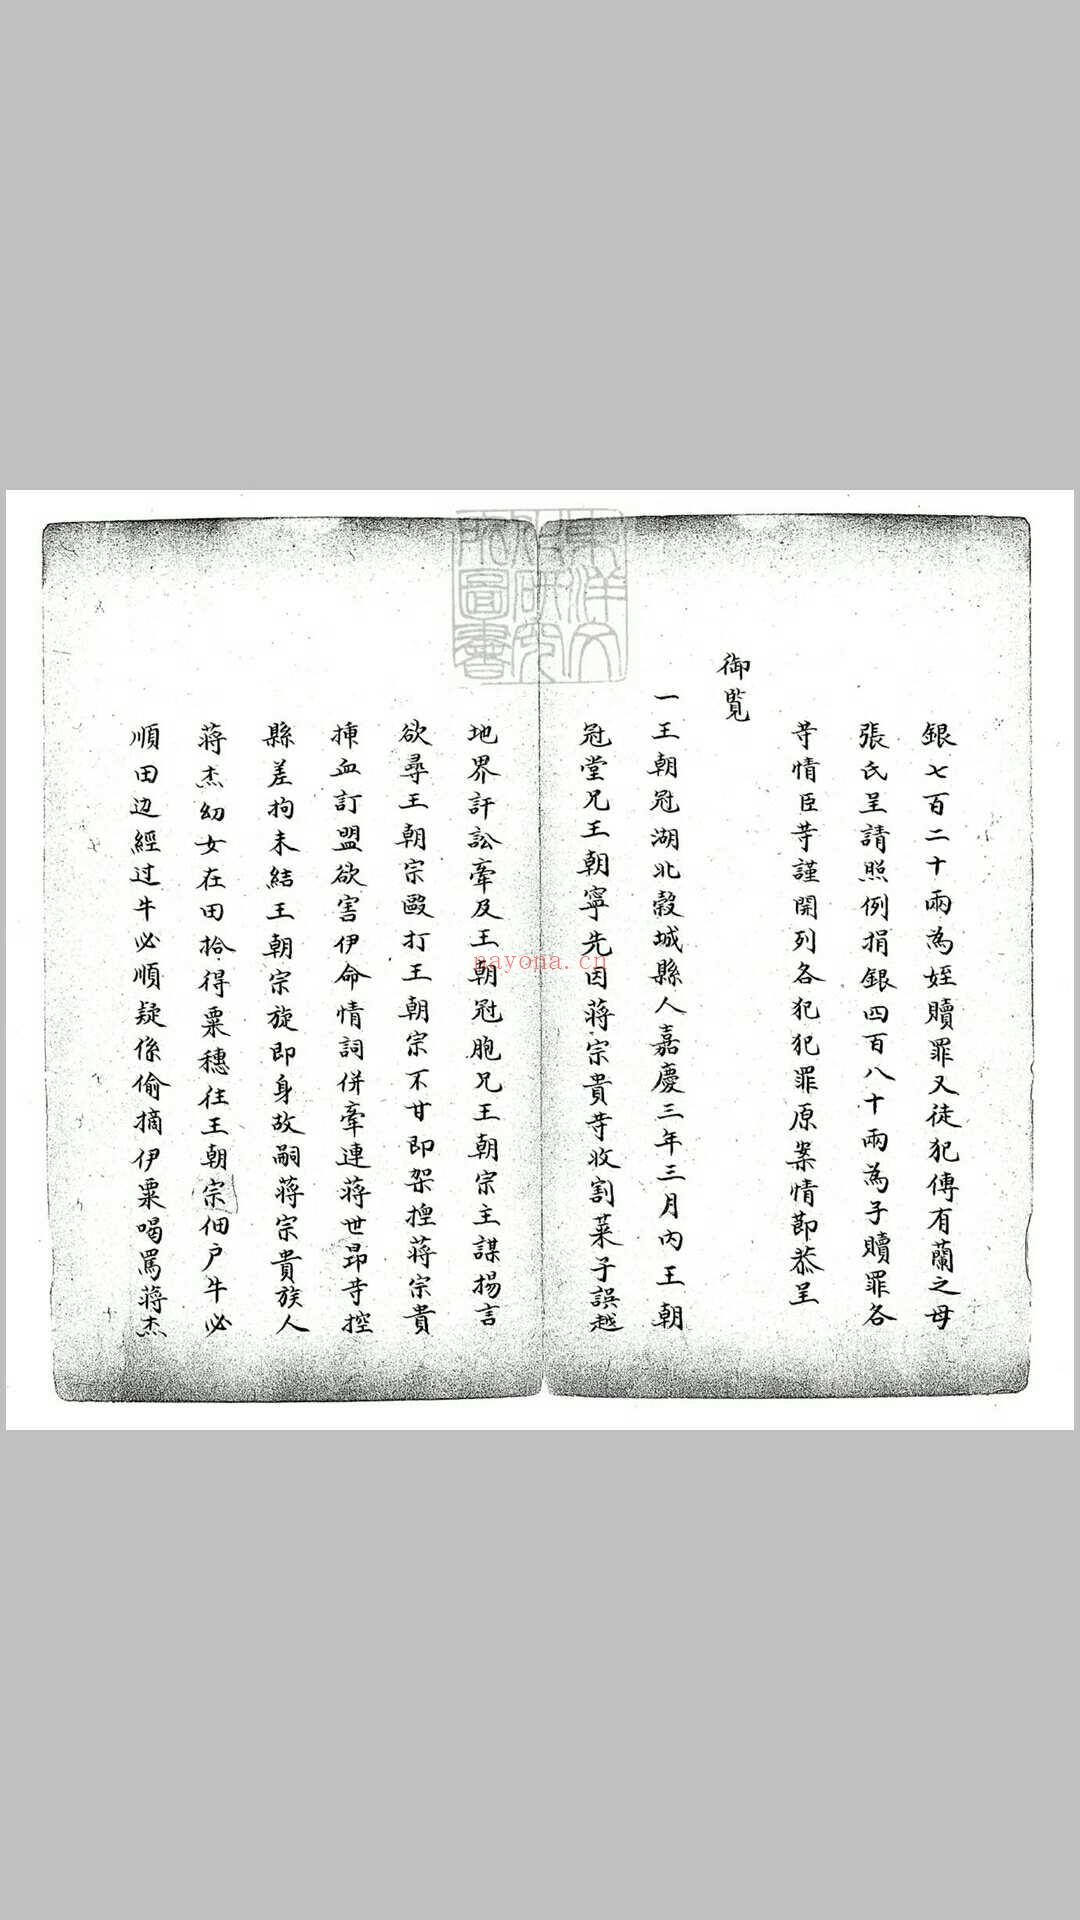 銀七百二十兩為姪贖罪又徒犯傅有蘭之母
張氏呈請照例捐銀四百八十兩為子贖罪各
等情臣等謹開列各犯犯罪原案情節恭呈
御覧
一王朝冠湖北穀城縣人嘉慶三年三月內王朝
冠堂兄王朝寧先因蔣宗貴等收割菜子誤越
地界訐訟牽及王朝冠胞兄王朝宗主謀揚言
欲尋王朝宗毆打王朝宗不甘即架捏蔣宗貴
揷血訂盟欲害伊命情詞併牽連蔣世昂等控
縣差拘未結王朝宗旋即身故嗣蔣宗貴族人
蔣杰幼女在田拾得粟穗往王朝宗佃户牛必
順田边經过牛必順疑係偷摘伊粟喝罵蔣杰
東洋文
圖書
nayona.cn